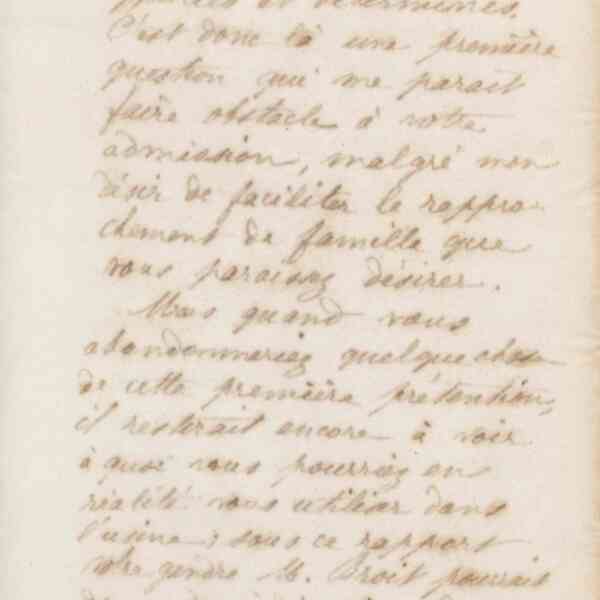 et déterminées.
C'est donc là une première
question qui me parait
faire obstacle à votre
admission, malgré mon
désir de faciliter le rappro-
chement de famille que
vous paraissez désirer.
Mais quand vous
abandonneriez quelque chose
de cette première prétention,
il resterait encore à voir
à quoi vous pourriez en
réalité vous utiliser dans
l'usine; sous ce rapport
votre gendre M. pourrait